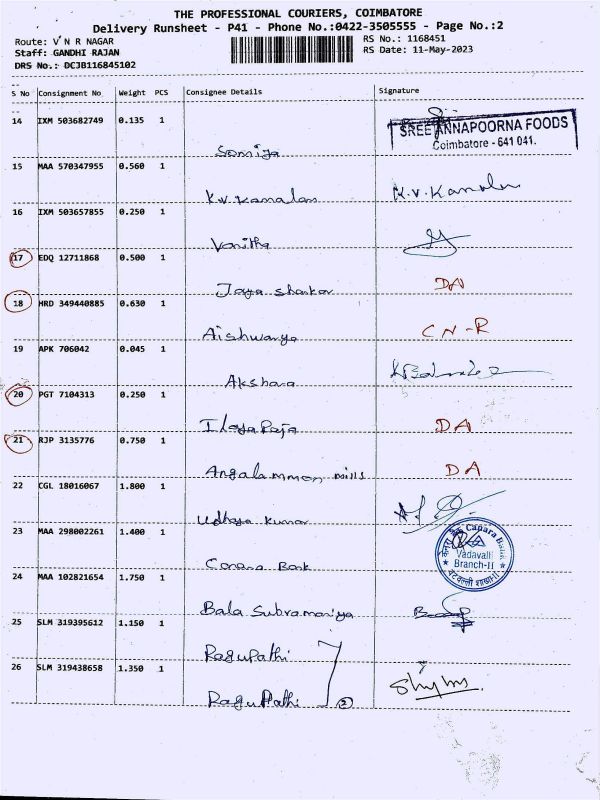 THE PROFESSIONAL COURIERS, COIMBATORE
Delivery Runsheet - P41 - Phone No.:0422-3505555 - Page No.:2
Route: V N R NAGAR
RS No.: 1168451
Staff: GANDHI RAJAN
RS Date: 11-May-2023
DRS No.: DCJB116845102
S No Consignment No Weight PCS Consignee Details Signature
14 IXM 503682749 0.135 1
SREE ANNAPOORNA FOODS
Coimbatore - 641 041.
15 MAA 570347955 0.560 1
K.V. Kamalam K.V. Kamalam
16 IXM 503657855 0.250 1
Vanitha
17 EDQ 12711868 0.500 1
Jaya Shankar DA
18 HRD 349440885 0.630 1
Aishwarya CN-R
19 APK 706042 0.045 1
Akshara
20 PGT 7104313 0.250 1
Ilaya Raja DA
21 RJP 3135776 0.750 1
Angalamman mills DA
22 CGL 18016067 1.800 1
Udhaya Kumar
23 MAA 298002261 1.400 1
Canara Bank
Canara Bank
Vadavalli
Branch-II
24 MAA 102821654 1.750 1
Bala Subramaniya
25 SLM 319395612 1.150 1
Ragupathi
26 SLM 319438658 1.350 1
Ragupathi 2